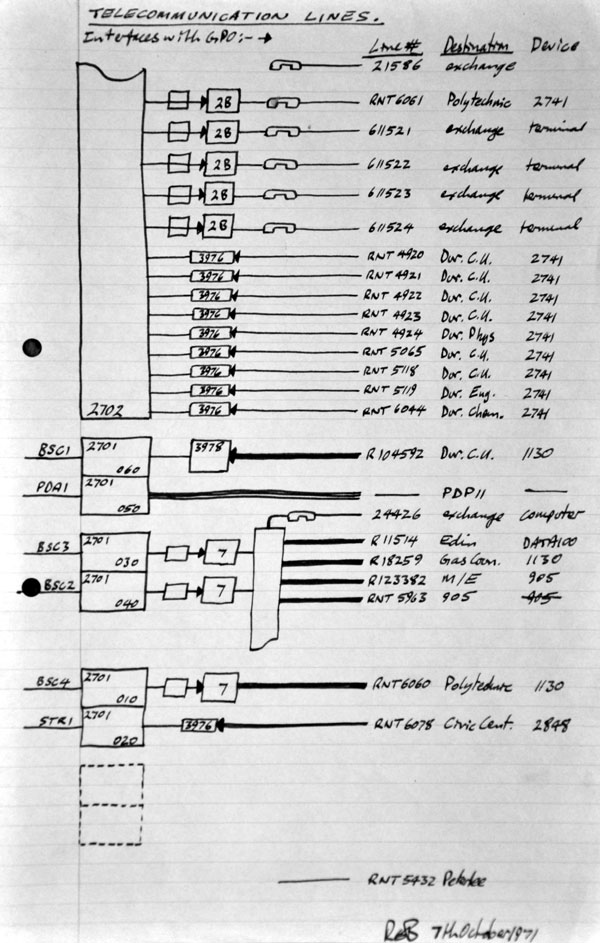 TELECOMMUNICATION LINES.
Interfaces with GPO:- →
Line # Destination Device
21586 exchange
2B RNT6061 Polytechnic 2741
2B 611521 exchange terminal
2B 611522 exchange terminal
2B 611523 exchange terminal
2B 611524 exchange terminal
3976 RNT 4920 Dur. C.U. 2741
3976 RNT 4921 Dur. C.U. 2741
3976 RNT 4922 Dur. C.U. 2741
3976 RNT 4923 Dur. C.U. 2741
3976 RNT 4924 Dur. Phys 2741
3976 RNT 5065 Dur. C.U. 2741
3976 RNT 5118 Dur. C.U. 2741
3976 RNT 5119 Dur. Eng. 2741
2702 3976 RNT 6044 Dur. Chem. 2741
BSC1 2701 060 3978 R104592 Dur. C.U. 1130
PDA1 2701 050 PDP11
24426 exchange computer
R11514 Edin DATA100
BSC3 2701 030 7 R18259 Gas Coun. 1130
BSC2 2701 040 7 R123382 M/E 905
RNT 5963 905 905
BSC4 2701 010 7 RNT6060 Polytechnic 1130
STR1 2701 020 3976 RNT6078 Civic Cent. 2848
RNT 5432 Peterlee
7th October 1971